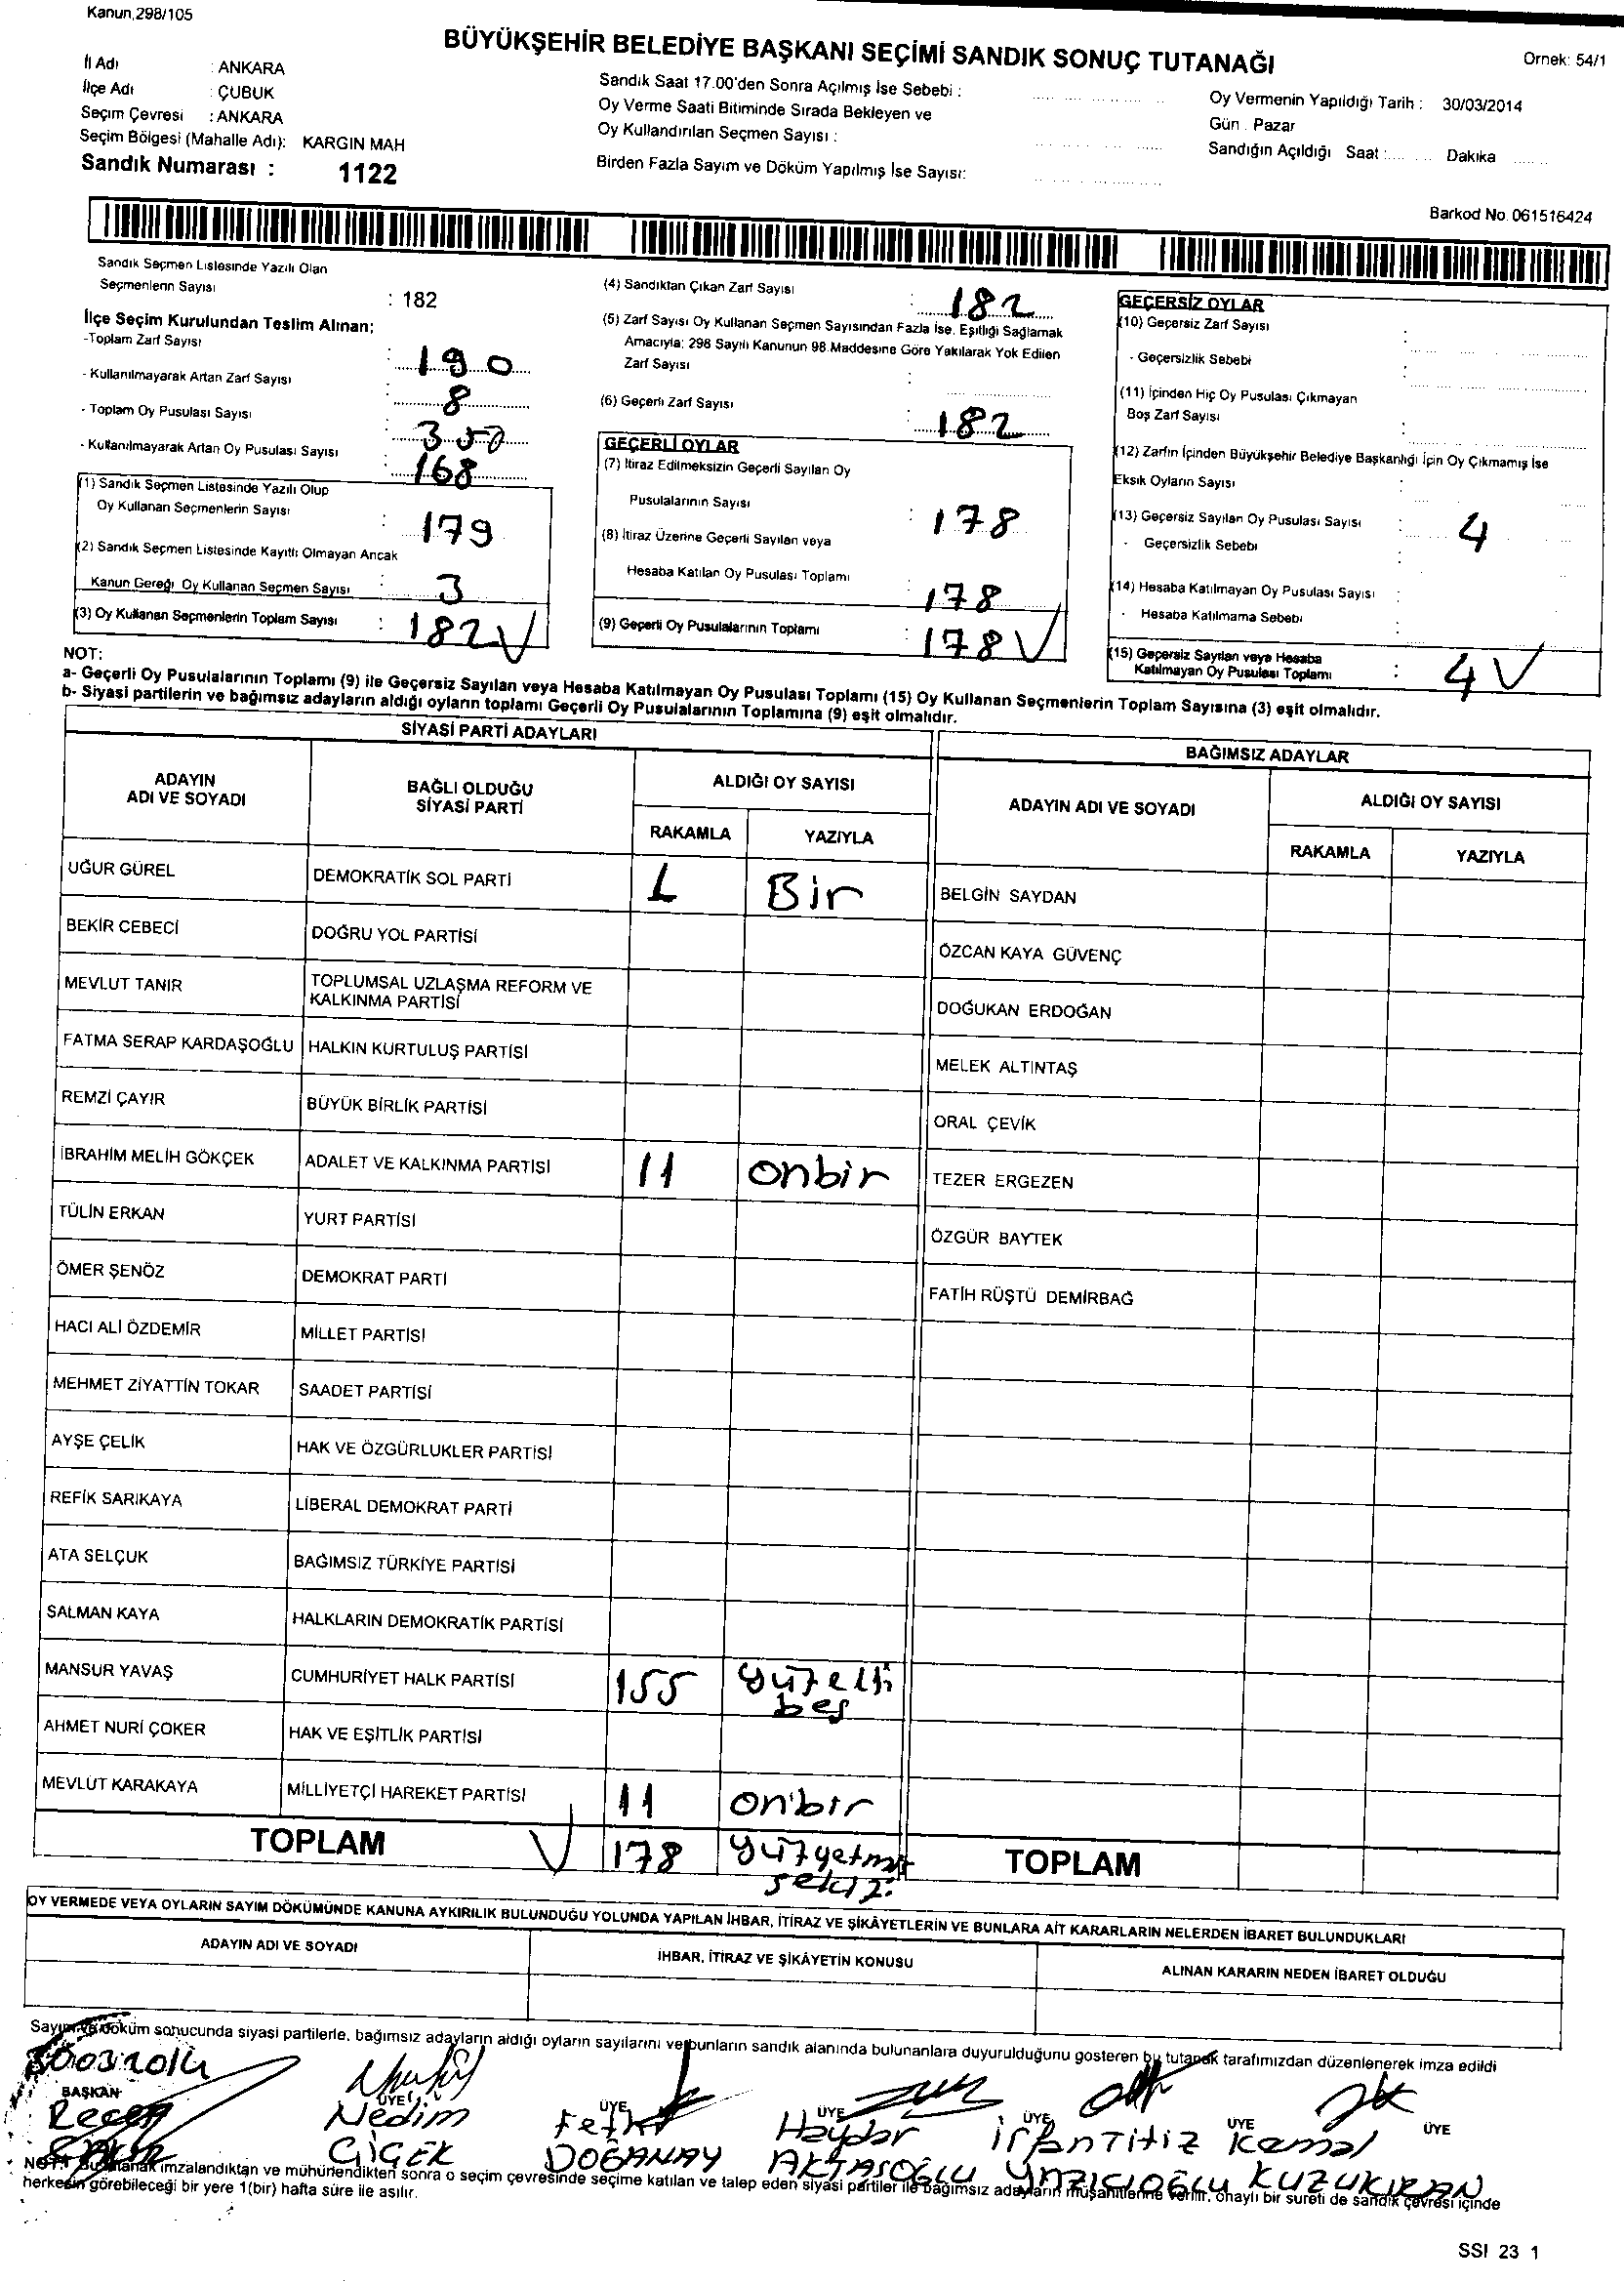 Kanun,298/105
BÜYÜKŞEHİR BELEDİYE BAŞKANI SEÇİMİ SANDIK SONUÇ TUTANAĞI
Ornek: 54/1
İl Adı : ANKARA
İlçe Adı : ÇUBUK
Seçim Çevresi : ANKARA
Seçim Bölgesi (Mahalle Adı): KARGIN MAH
Sandık Numarası : 1122
Sandık Saat 17.00'den Sonra Açılmış İse Sebebi :
Oy Verme Saati Bitiminde Sırada Bekleyen ve
Oy Kullandırılan Seçmen Sayısı :
Birden Fazla Sayım ve Döküm Yapılmış İse Sayısı:
Oy Vermenin Yapıldığı Tarih : 30/03/2014
Gün . Pazar
Sandığın Açıldığı Saat : Dakika
Barkod No. 061516424
Sandık Seçmen Listesinde Yazılı Olan
Seçmenlerin Sayısı : 182
İlçe Seçim Kurulundan Teslim Alınan;
-Toplam Zarf Sayısı : 190
- Kullanılmayarak Artan Zarf Sayısı : 8
- Toplam Oy Pusulası Sayısı : 350
- Kullanılmayarak Artan Oy Pusulası Sayısı : 168
(1) Sandık Seçmen Listesinde Yazılı Olup
Oy Kullanan Seçmenlerin Sayısı : 179
(2) Sandık Seçmen Listesinde Kayıtlı Olmayan Ancak
Kanun Gereği Oy Kullanan Seçmen Sayısı : 3
(3) Oy Kullanan Seçmenlerin Toplam Sayısı : 182
(4) Sandıktan Çıkan Zarf Sayısı : 182
(5) Zarf Sayısı Oy Kullanan Seçmen Sayısından Fazla İse. Eşitliği Sağlamak
Amacıyla; 298 Sayılı Kanunun 98.Maddesine Göre Yakılarak Yok Edilen
Zarf Sayısı :
(6) Geçerli Zarf Sayısı : 182
GEÇERLİ OYLAR
(7) İtiraz Edilmeksizin Geçerli Sayılan Oy
Pusulalarının Sayısı : 178
(8) İtiraz Üzerine Geçerli Sayılan veya
Hesaba Katılan Oy Pusulası Toplamı : 178
(9) Geçerli Oy Pusulalarının Toplamı : 178
GEÇERSİZ OYLAR
(10) Geçersiz Zarf Sayısı :
- Geçersizlik Sebebi :
(11) İçinden Hiç Oy Pusulası Çıkmayan
Boş Zarf Sayısı :
(12) Zarfın İçinden Büyükşehir Belediye Başkanlığı İçin Oy Çıkmamış İse
Eksik Oyların Sayısı :
(13) Geçersiz Sayılan Oy Pusulası Sayısı : 4
- Geçersizlik Sebebi :
(14) Hesaba Katılmayan Oy Pusulası Sayısı :
- Hesaba Katılmama Sebebi :
(15) Geçersiz Sayılan veya Hesaba
Katılmayan Oy Pusulası Toplamı : 4
NOT:
a- Geçerli Oy Pusulalarının Toplamı (9) ile Geçersiz Sayılan veya Hesaba Katılmayan Oy Pusulası Toplamı (15) Oy Kullanan Seçmenlerin Toplam Sayısına (3) eşit olmalıdır.
b- Siyasi partilerin ve bağımsız adayların aldığı oyların toplamı Geçerli Oy Pusulalarının Toplamına (9) eşit olmalıdır.
SİYASİ PARTİ ADAYLARI
ADAYIN ADI VE SOYADI
BAĞLI OLDUĞU SİYASİ PARTİ
ALDIĞI OY SAYISI
RAKAMLA YAZIYLA
UĞUR GÜREL DEMOKRATİK SOL PARTİ 1 Bir
BEKİR CEBECİ DOĞRU YOL PARTİSİ
MEVLUT TANIR TOPLUMSAL UZLAŞMA REFORM VE
KALKINMA PARTİSİ
FATMA SERAP KARDAŞOĞLU HALKIN KURTULUŞ PARTİSİ
REMZİ ÇAYIR BÜYÜK BİRLİK PARTİSİ
İBRAHİM MELİH GÖKÇEK ADALET VE KALKINMA PARTİSİ 11 onbir
TÜLİN ERKAN YURT PARTİSİ
ÖMER ŞENÖZ DEMOKRAT PARTİ
HACI ALİ ÖZDEMİR MİLLET PARTİSİ
MEHMET ZİYATTİN TOKAR SAADET PARTİSİ
AYŞE ÇELİK HAK VE ÖZGÜRLUKLER PARTİSİ
REFİK SARIKAYA LİBERAL DEMOKRAT PARTİ
ATA SELÇUK BAĞIMSIZ TÜRKİYE PARTİSİ
SALMAN KAYA HALKLARIN DEMOKRATİK PARTİSİ
MANSUR YAVAŞ CUMHURİYET HALK PARTİSİ 155 yüzelli
beş
AHMET NURİ ÇOKER HAK VE EŞİTLİK PARTİSİ
MEVLÜT KARAKAYA MİLLİYETÇİ HAREKET PARTİSİ 11 onbir
TOPLAM 178 yüzyetmiş
sekiz
BAĞIMSIZ ADAYLAR
ADAYIN ADI VE SOYADI
ALDIĞI OY SAYISI
RAKAMLA YAZIYLA
BELGİN SAYDAN
ÖZCAN KAYA GÜVENÇ
DOĞUKAN ERDOĞAN
MELEK ALTINTAŞ
ORAL ÇEVİK
TEZER ERGEZEN
ÖZGÜR BAYTEK
FATİH RÜŞTÜ DEMİRBAĞ
TOPLAM
OY VERMEDE VEYA OYLARIN SAYIM DÖKÜMÜNDE KANUNA AYKIRILIK BULUNDUĞU YOLUNDA YAPILAN İHBAR, İTİRAZ VE ŞİKÂYETLERİN VE BUNLARA AİT KARARLARIN NELERDEN İBARET BULUNDUKLARI
ADAYIN ADI VE SOYADI
İHBAR, İTİRAZ VE ŞİKÂYETİN KONUSU
ALINAN KARARIN NEDEN İBARET OLDUĞU
Sayım ve döküm sonucunda siyasi partilerle, bağımsız adayların aldığı oyların sayılarını ve bunların sandık alanında bulunanlara duyurulduğunu gösteren bu tutanak tarafımızdan düzenlenerek imza edildi
30032014
BAŞKAN ÜYE ÜYE ÜYE ÜYE ÜYE ÜYE
Recep
Nedim ÇİÇEK
DOĞANAY
Haydar AKTAŞOĞLU
YAZICIOĞLU
Kemal KUZUKIRAN
NOT: Bu tutanak imzalandıktan ve mühürlendikten sonra o seçim çevresinde seçime katılan ve talep eden siyasi partiler ile bağımsız adayların müşahitlerine verilir, onaylı bir sureti de sandık çevresi içinde
herkesin görebileceği bir yere 1(bir) hafta süre ile asılır.
SSI 23 1